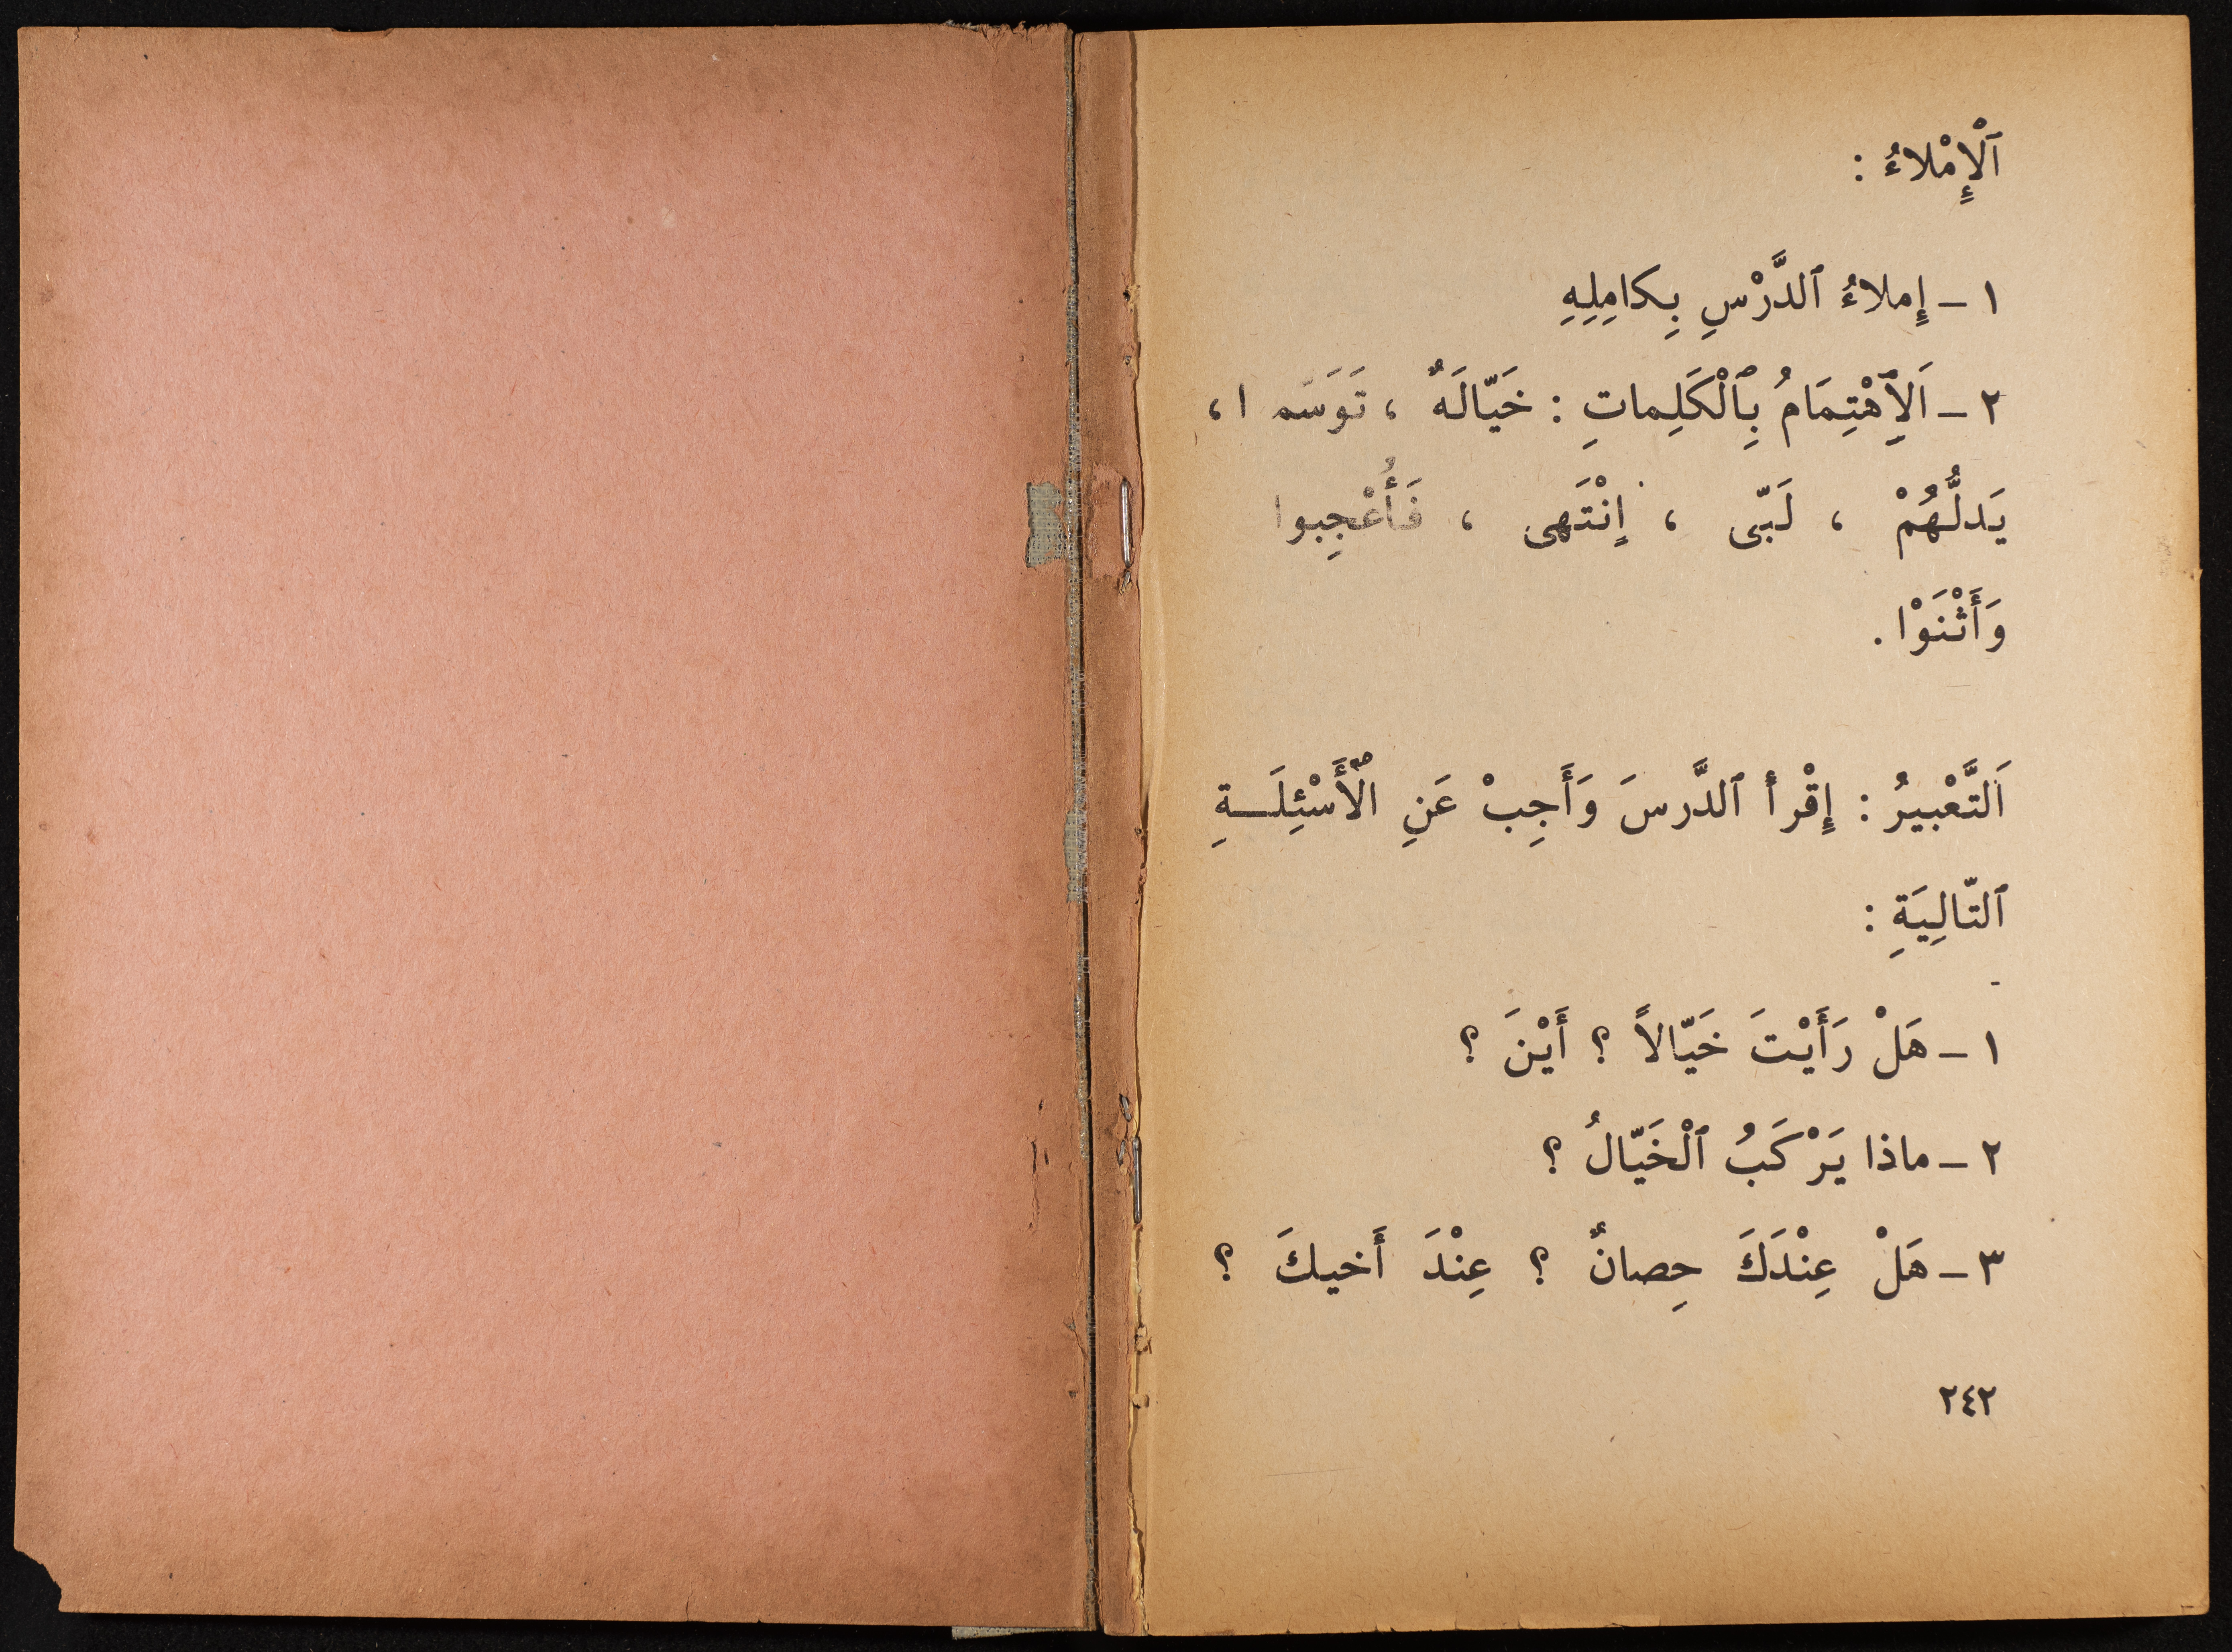 اَلْإِمْلاءُ :
١ - إِملاءُ ٱلدَّرْسِ بِكامِلِهِ
٢ - اَلِٱهْتِمَامُ بِٱلْكَلِماتِ : خَيّالَةٌ ،
يَدلُّهُمْ ، لَبّى ، إِنْتَهى ، فَأُعْجِبوا
وَأَثْنَوْا .
اَلتَّعْبيرُ : إِقْرأ ٱلدَّرسَ وَأَجِبْ عَنِ ٱلْأَسْئِلَـــةِ
ٱلتّالِيَةِ :
١ - هَلْ رَأَيْتَ خَيّالاً ؟ أَيْنَ ؟
٢ - ماذا يَرْكَبُ ٱلْخَيّالُ ؟
٣ - هَلْ عِنْدَكَ حِصانٌ ؟ عِنْدَ أَخيكَ ؟
٢٤٢